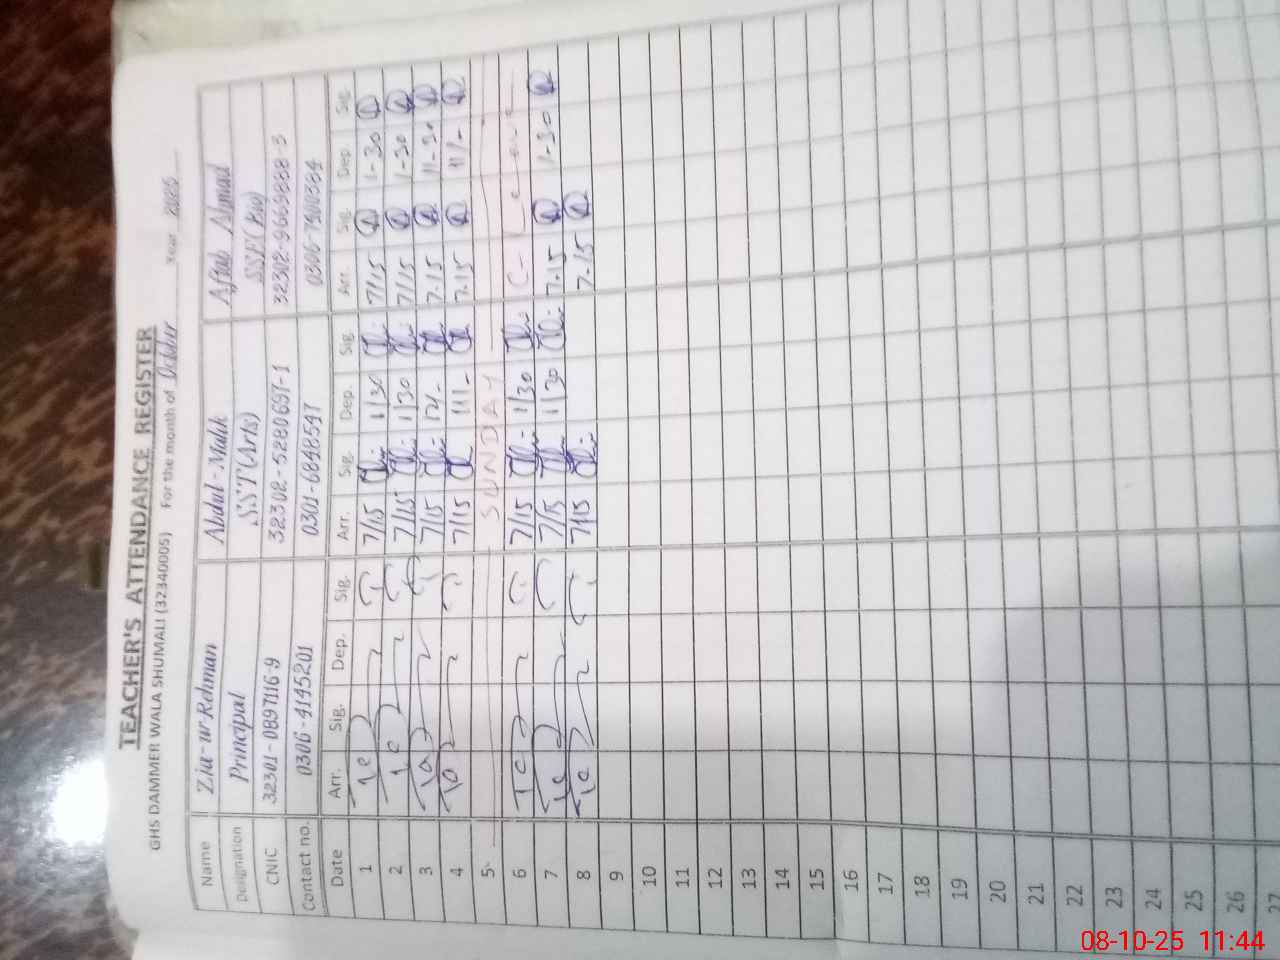 TEACHER'S ATTENDANCE REGISTER
GHS DAMMER WALA SHUMALI (32340005) For the month of October Year 2025
Name Zia-ur-Rehman Abdul-Malik Aftab Ahmad
Designation Principal SST(Arts)
CNIC 32301-0897116-9 32302-5280697-1 32302-9669888-3
Contact no. 0306-4145201 0301-6848547
Date Arr. Sig. Dep. Sig. Arr. Sig. Dep. Sig. Arr. Sig. Dep. Sig.
1 7/15 1/30 7/15 1-30
2 7/15 1/30 7/15 1-30
3 7/15 12/- 7-15 11-30
4 7/15 11/- 7-15 11/-
5 SUNDAY
6 7/15 1/30 C-Leave
7 7/15 1/30 7-15 1-30
8 7/15 7-15
9
10
11
12
13
14
15
16
17
18
19
20
21
22
23
24
25
26
27
08-10-25 11:44